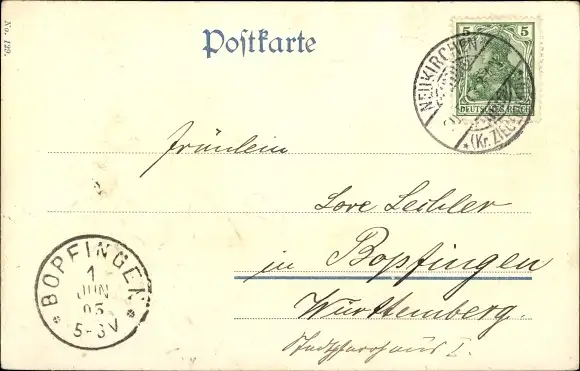 No. 129.
Postkarte
5 5
DEUTSCHES REICH
NEUKIRCHEN
* (Kr. ZIEG
Fräulein
Lore Lechler
in Bopfingen
Württemberg.
Stadtpfarrhaus I.
* BOPFINGEN *
1
JUN
05
5-6 V